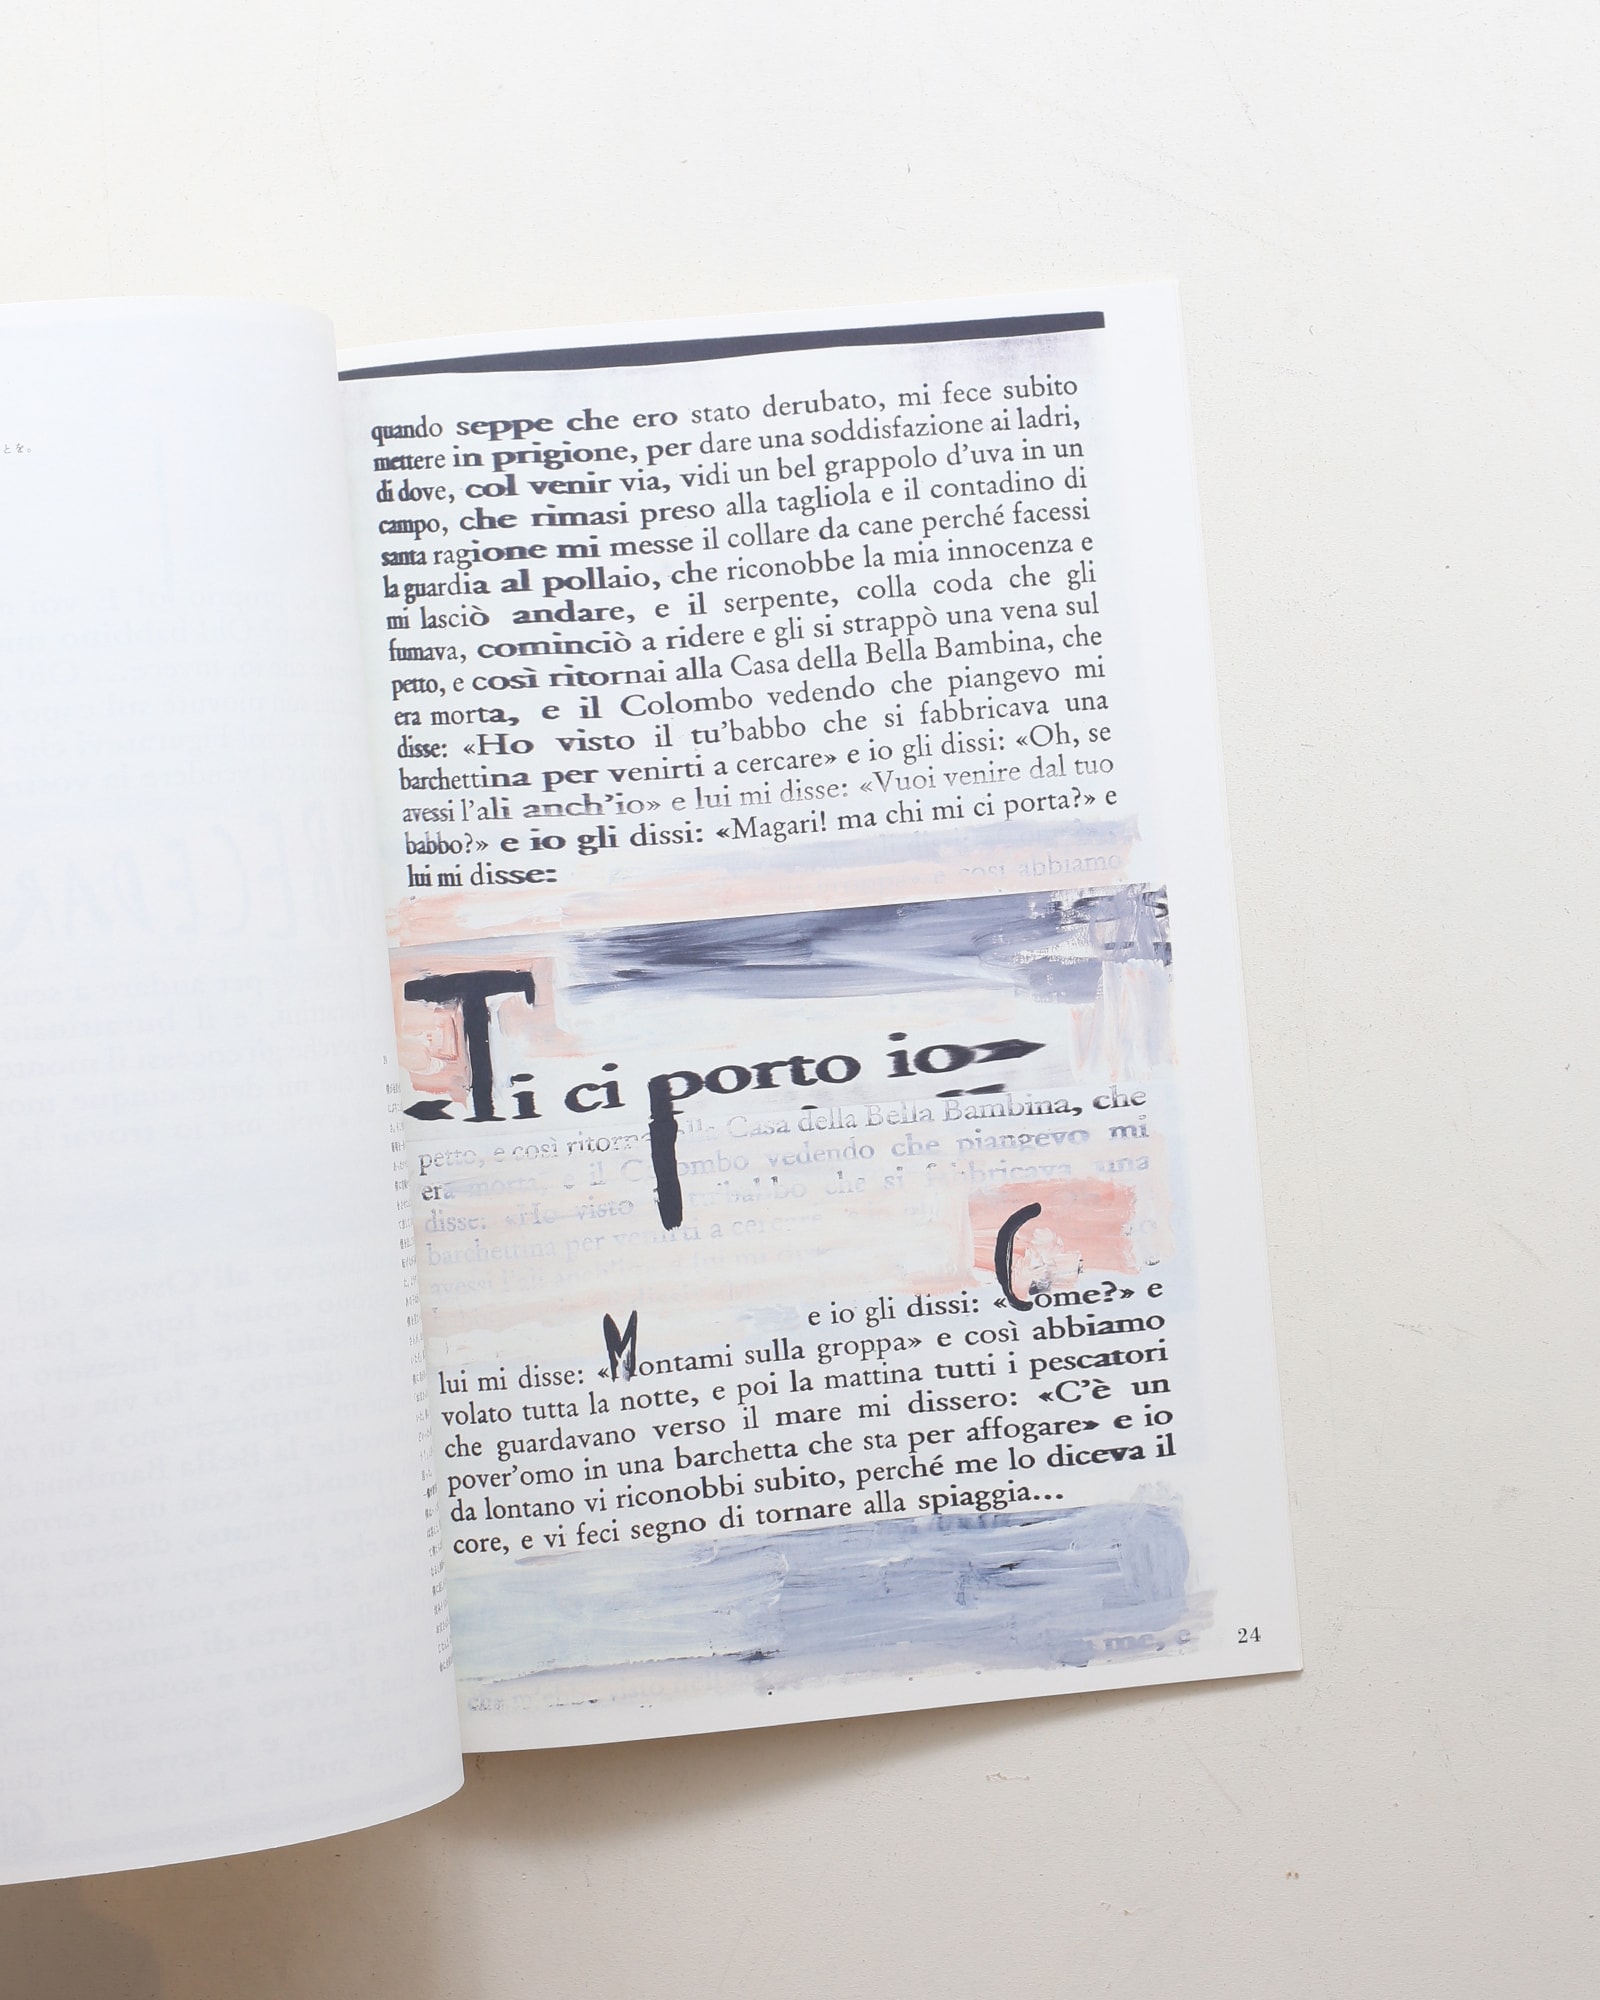 とを。
quando seppe che ero stato derubato, mi fece subito
mettere in prigione, per dare una soddisfazione ai ladri,
di dove, col venir via, vidi un bel grappolo d'uva in un
campo, che rimasi preso alla tagliola e il contadino di
santa ragione mi messe il collare da cane perché facessi
la guardia al pollaio, che riconobbe la mia innocenza e
mi lasciò andare, e il serpente, colla coda che gli
fumava, cominciò a ridere e gli si strappò una vena sul
petto, e così ritornai alla Casa della Bella Bambina, che
era morta, e il Colombo vedendo che piangevo mi
disse: «Ho visto il tu'babbo che si fabbricava una
barchettina per venirti a cercare» e io gli dissi: «Oh, se
avessi l'ali anch'io» e lui mi disse: «Vuoi venire dal tuo
babbo?» e io gli dissi: «Magari! ma chi mi ci porta?» e
lui mi disse:
e così abbiamo
«Ti ci porto io»
petto, e così ritorna alla Casa della Bella Bambina, che
era morta, e il Colombo vedendo che piangevo mi
disse: «Ho visto il tu'babbo che si fabbricava una
barchettina per venirti a cercare
avessi l'ali
e io gli dissi: «Come?» e
lui mi disse: «Montami sulla groppa» e così abbiamo
volato tutta la notte, e poi la mattina tutti i pescatori
che guardavano verso il mare mi dissero: «C'è un
pover'omo in una barchetta che sta per affogare» e io
da lontano vi riconobbi subito, perché me lo diceva il
core, e vi feci segno di tornare alla spiaggia...
me, e
24